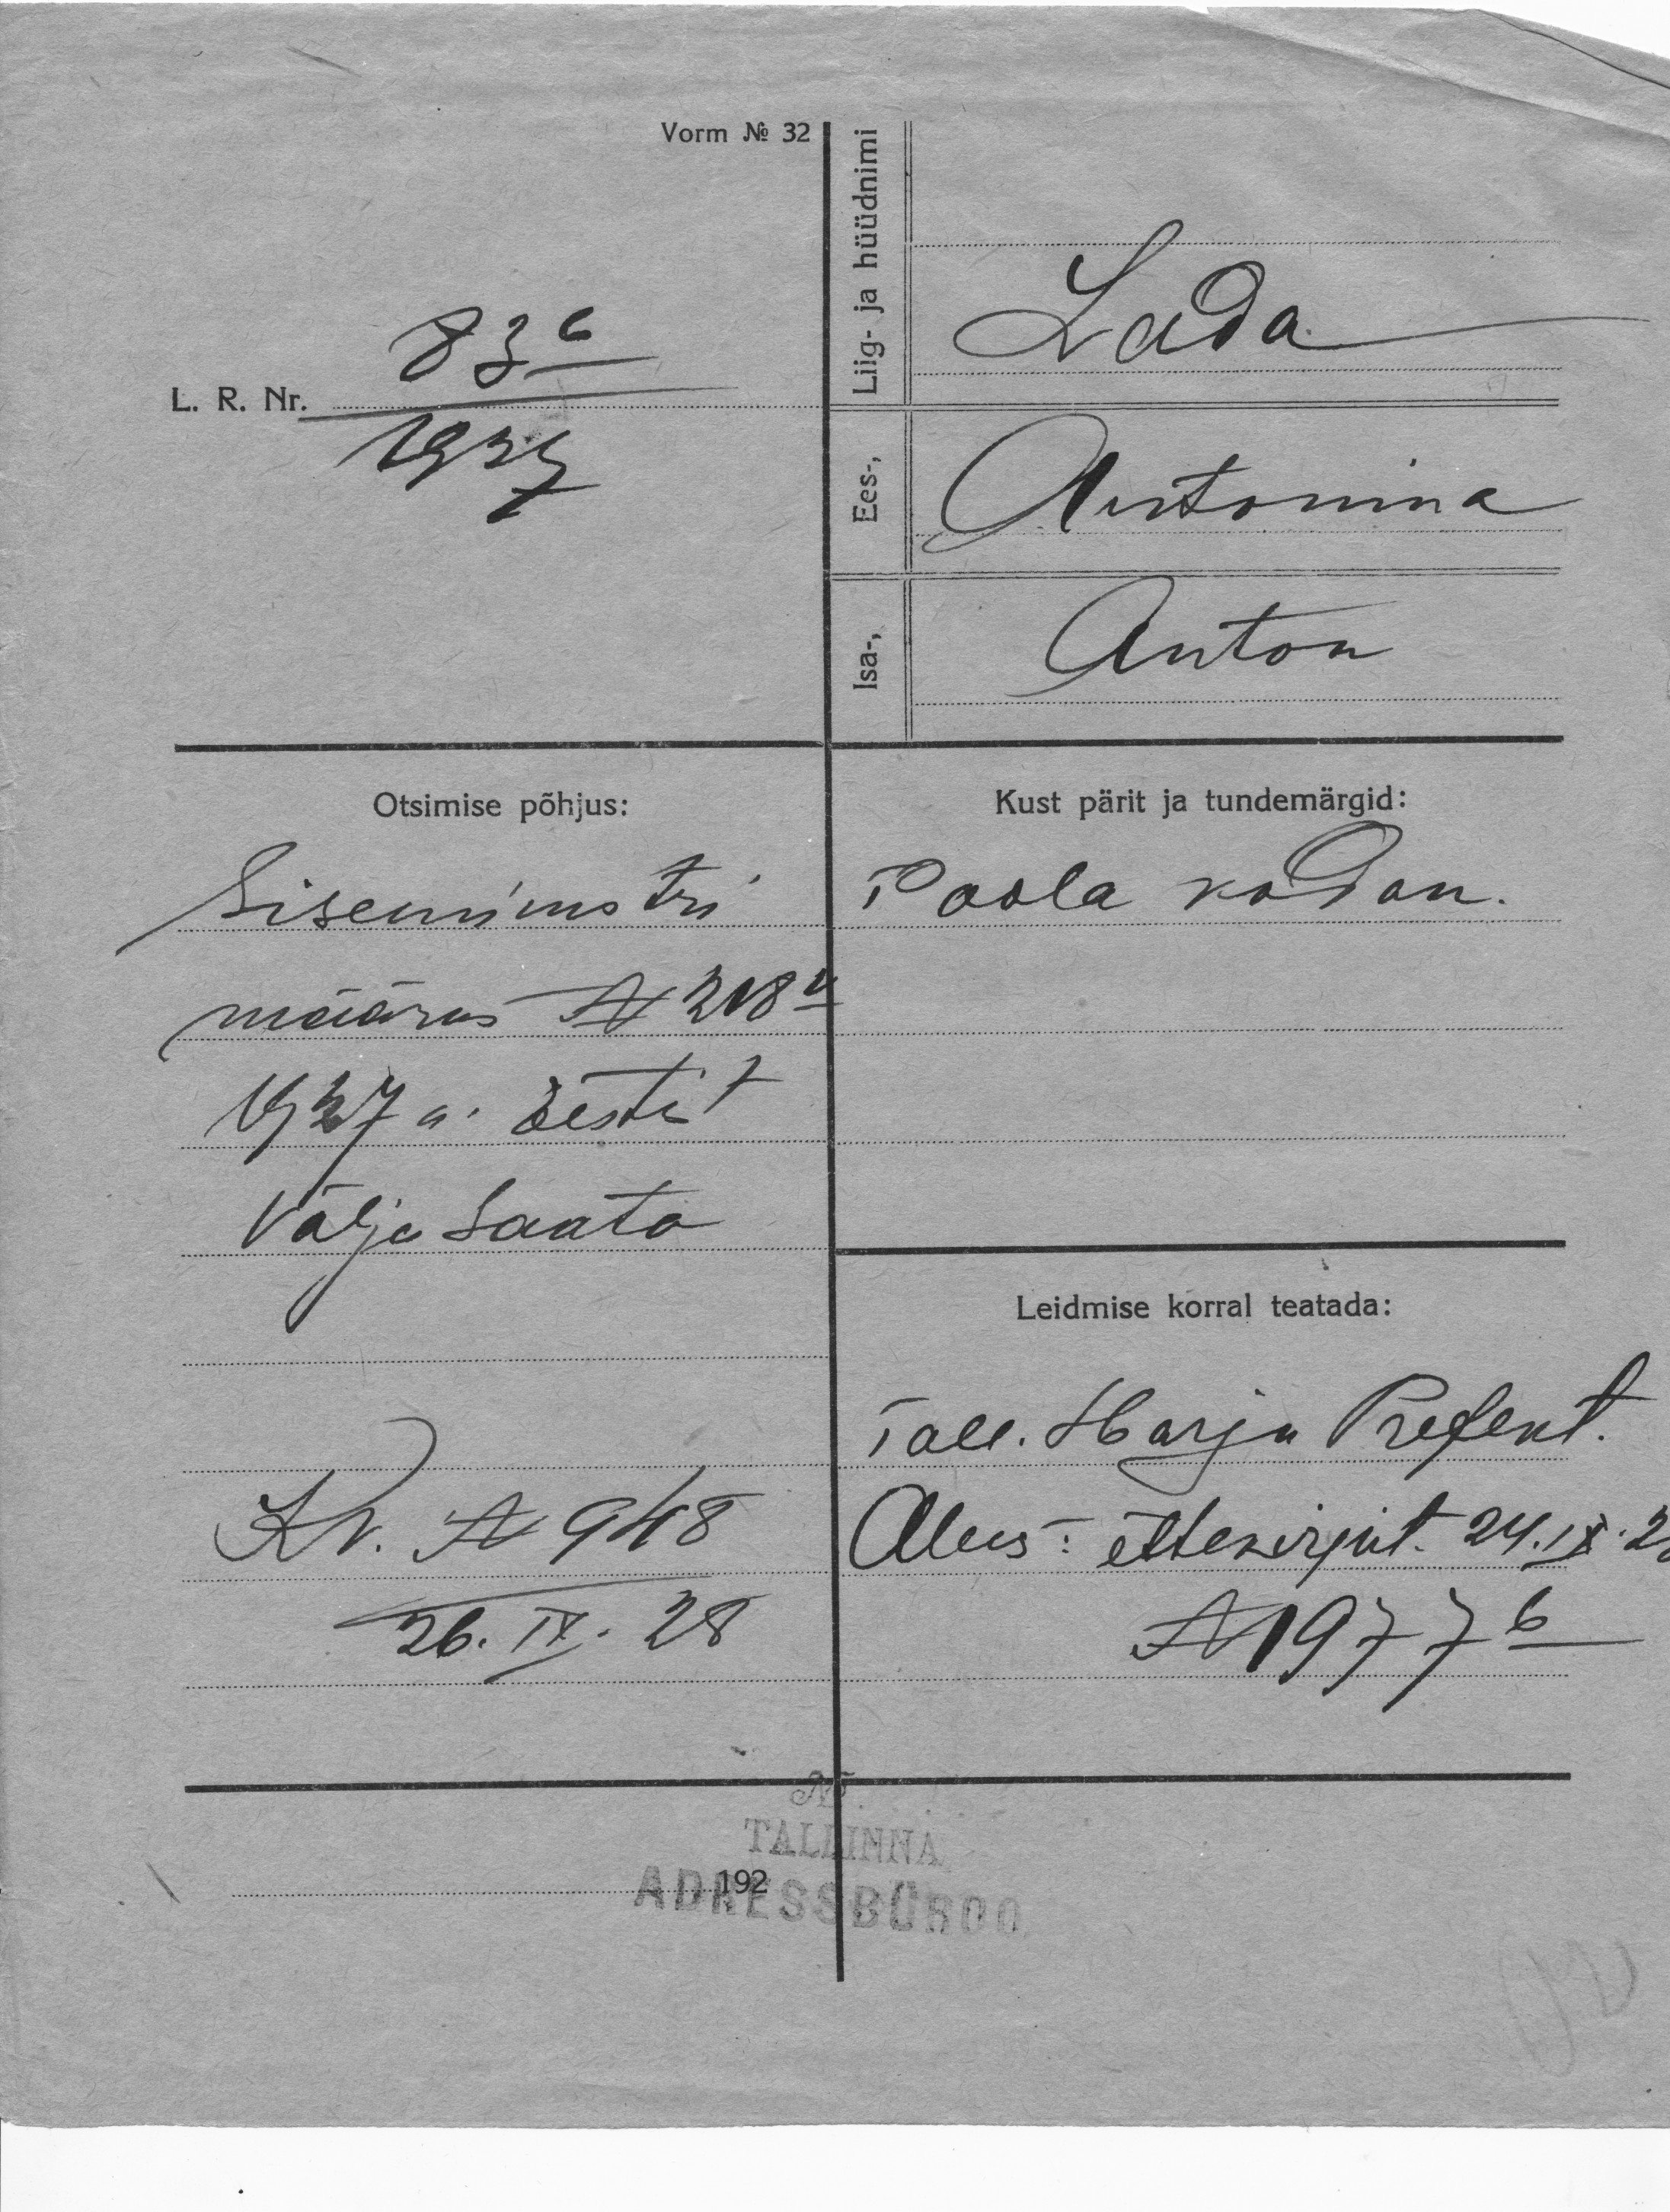 Vorm № 32
Liig- ja hüüdnimi
Lada
L. R. Nr. 836
1927
Ees-,
Antonina
Isa-,
Anton
Otsimise põhjus:
Siseministri
määrus N 218
1927 a. Eestist
Välja saata
Kr. N 948
26. IX. 28
Kust pärit ja tundemärgid:
Poola kodan.
Leidmise korral teatada:
Tall. Harju Prefekt.
Alus: ettekirjut. 24.IX.28
N 1977 b
TALLINNA
192
ADRESSBÜROO